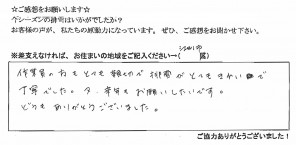 ☆ご感想をお願いします☆
今シーズンの排雪はいかがでしたか？
お客様の声が、私たちの原動力になっています。ぜひ、ご感想をお聞かせ下さい。
※差支えなければ、お住まいの地域をご記入ください→( 区)
作業員の方もとても親切で排雪がとてもきれいで
丁寧でした。又、来年もお願いしたいです。
どうもありがとうございました。
ご協力ありがとうございました！